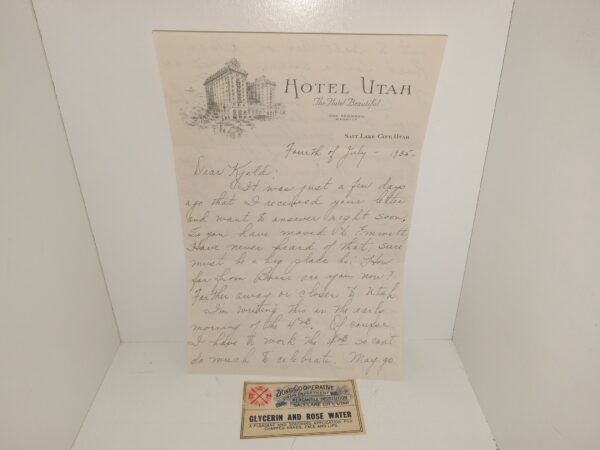 HOTEL UTAH
The Hotel Beautiful
GUY TOOMBES
MANAGER
SALT LAKE CITY, UTAH
Fourth of July - 1935-
Dear Kjeld:
It was just a few days
ago that I received your letter
and want to answer right soon.
So you have moved to Emmett
Have never heard of that, sure
must be a big place hi. How
far from Boise are you now?
Farther away or closer to Utah
I'm writing this in the early
morning of the 4th. Of course
I have to work the 4th so can't
do much to celebrate. May go
CO-OPERATIVE
DRUG DEPARTMENT
MERCANTILE INSTITUTION
SALT LAKE CITY, UTAH
GLYCERIN AND ROSE WATER
A PLEASANT AND SOOTHING APPLICATION FOR
CHAPPED HANDS, FACE AND LIPS.